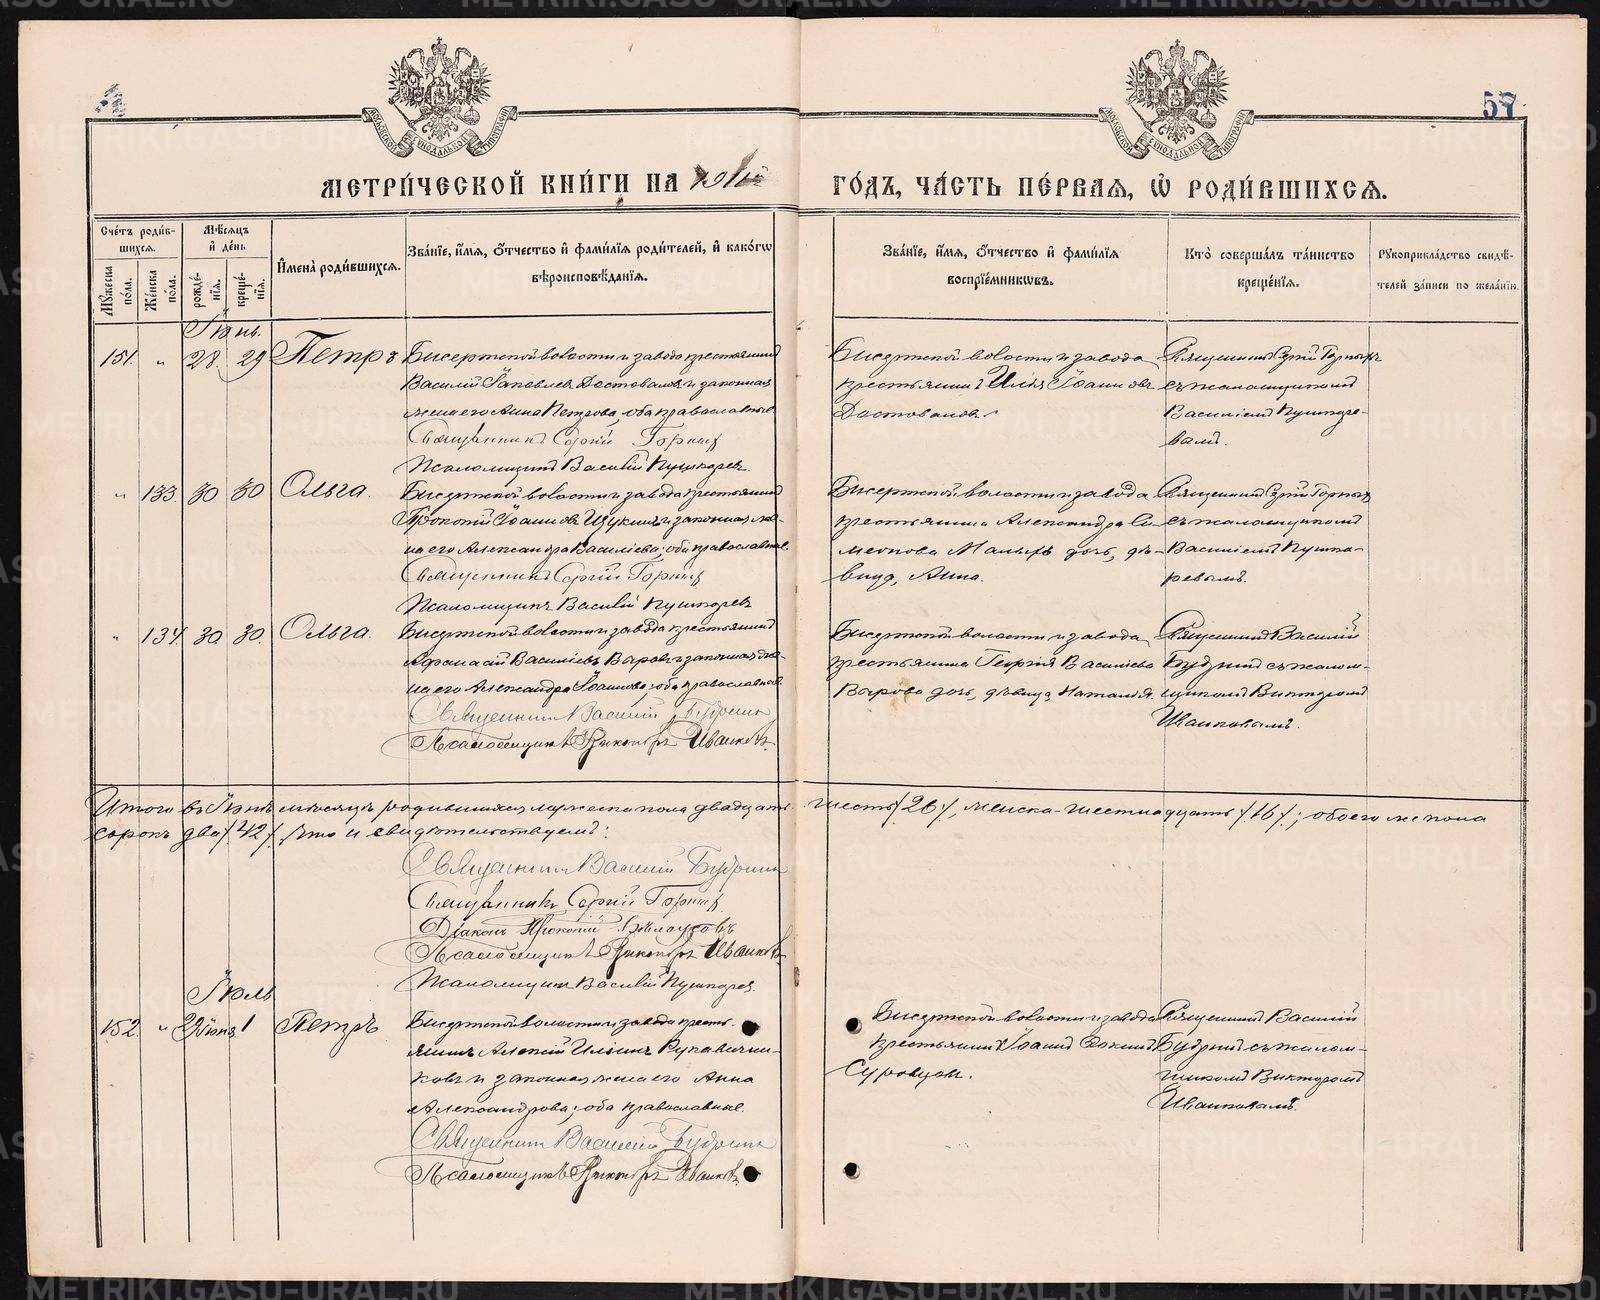 57
МОСКОВСКОЙ СѴНОДАЛЬНОЙ ТИПОГРАФІИ
МОСКОВСКОЙ СѴНОДАЛЬНОЙ ТИПОГРАФІИ
МЕТРИ́ЧЕСКОЙ КНИ́ГИ НА ГО́ДЪ, ЧА́СТЬ ПЕ́РВАѦ, Ѡ҆ РОДИ́ВШИХСѦ.
Сче́тъ роди́в-
шихсѧ.
Мꙋжеска по́ла.
Же́нска по́ла.
Мѣ́сѧцъ
и҆ де́нь
рожде́-
нїѧ.
креще́-
нїѧ.
И҆мена̀ роди́вшихсѧ.
Зва́нїе, и҆́мѧ, ѻ҆́тчество и҆ фами́лїѧ роди́телей, и҆ како́гѡ
вѣроисповѣ́данїѧ.
Зва́нїе, и҆́мѧ, ѻ҆́тчество и҆ фами́лїѧ
воспрїе́мникѡвъ.
Кто̀ соверша́лъ та́инство
креще́нїѧ.
Рꙋкоприкла́дство свидѣ́-
телей за́писи по жела́нїю.
Іюнь.
151. " 28. 29 Петръ
Бисертской волости и завода крестьянинъ
Василій Іаковлевъ Достоваловъ и законная
жена его Анна Петрова, оба православные
Священникъ Сергій Горныхъ
Псаломщикъ Василій Пушкаревъ.
Бисертской волости и завода
крестьянинъ Илія Іоанновъ
Достоваловъ
Священникъ Сергій Горныхъ
съ псаломщикомъ
Василіемъ Пушкаре-
вымъ.
" 133. 30 30 Ольга.
Бисертской волости и завода крестьянинъ
Прокопій Іоанновъ Щукинъ и законная же-
на его Александра Василіева; оба православные.
Священникъ Сергій Горныхъ
Псаломщикъ Василій Пушкаревъ
Бисертской волости и завода
крестьянина Александра Си-
меонова Малыхъ дочь, дѣ-
вица, Анна.
Священникъ Сергій Горныхъ
съ псаломщикомъ
Василіемъ Пушка-
ревымъ.
" 134. 30 30. Ольга.
Бисертской волости и завода крестьянинъ
Афанасій Василіевъ Выровъ и законная же-
на его Александра Іоаннова; оба православные.
Священникъ Василій Будринъ
Псаломщикъ Викторъ Иванковъ
Бисертской волости и завода
крестьянина Георгія Василіева
Вырова дочь, дѣвица Наталія.
Священникъ Василій
Будринъ съ псалом-
щикомъ Викторомъ
Иванковымъ.
Итого въ Іюнѣ мѣсяцѣ родившихся мужеска пола двадцать шесть /26/, женска-шестнадцать /16/; обоего же пола
сорокъ два /42/, что и свидѣтельствуемъ:
Священникъ Василій Будринъ
Священникъ Сергій Горныхъ
Діаконъ Прокопій
Псаломщикъ Викторъ Иванковъ
Псаломщикъ Василій Пушкаревъ.
Іюль
152. " 29 іюня 1 Петръ
Бисертской волости и завода кресть-
янинъ Алексій Иліинъ Рукавични-
ковъ и законная жена его Анна
Александрова; оба православные.
Священникъ Василій Будринъ
Псаломщикъ Викторъ Иванковъ
Бисертской волости и завода
крестьянинъ Іоаннъ
Суровцовъ.
Священникъ Василій
Будринъ съ псалом-
щикомъ Викторомъ
Иванковымъ.
METRIKI.GASO-URAL.RU